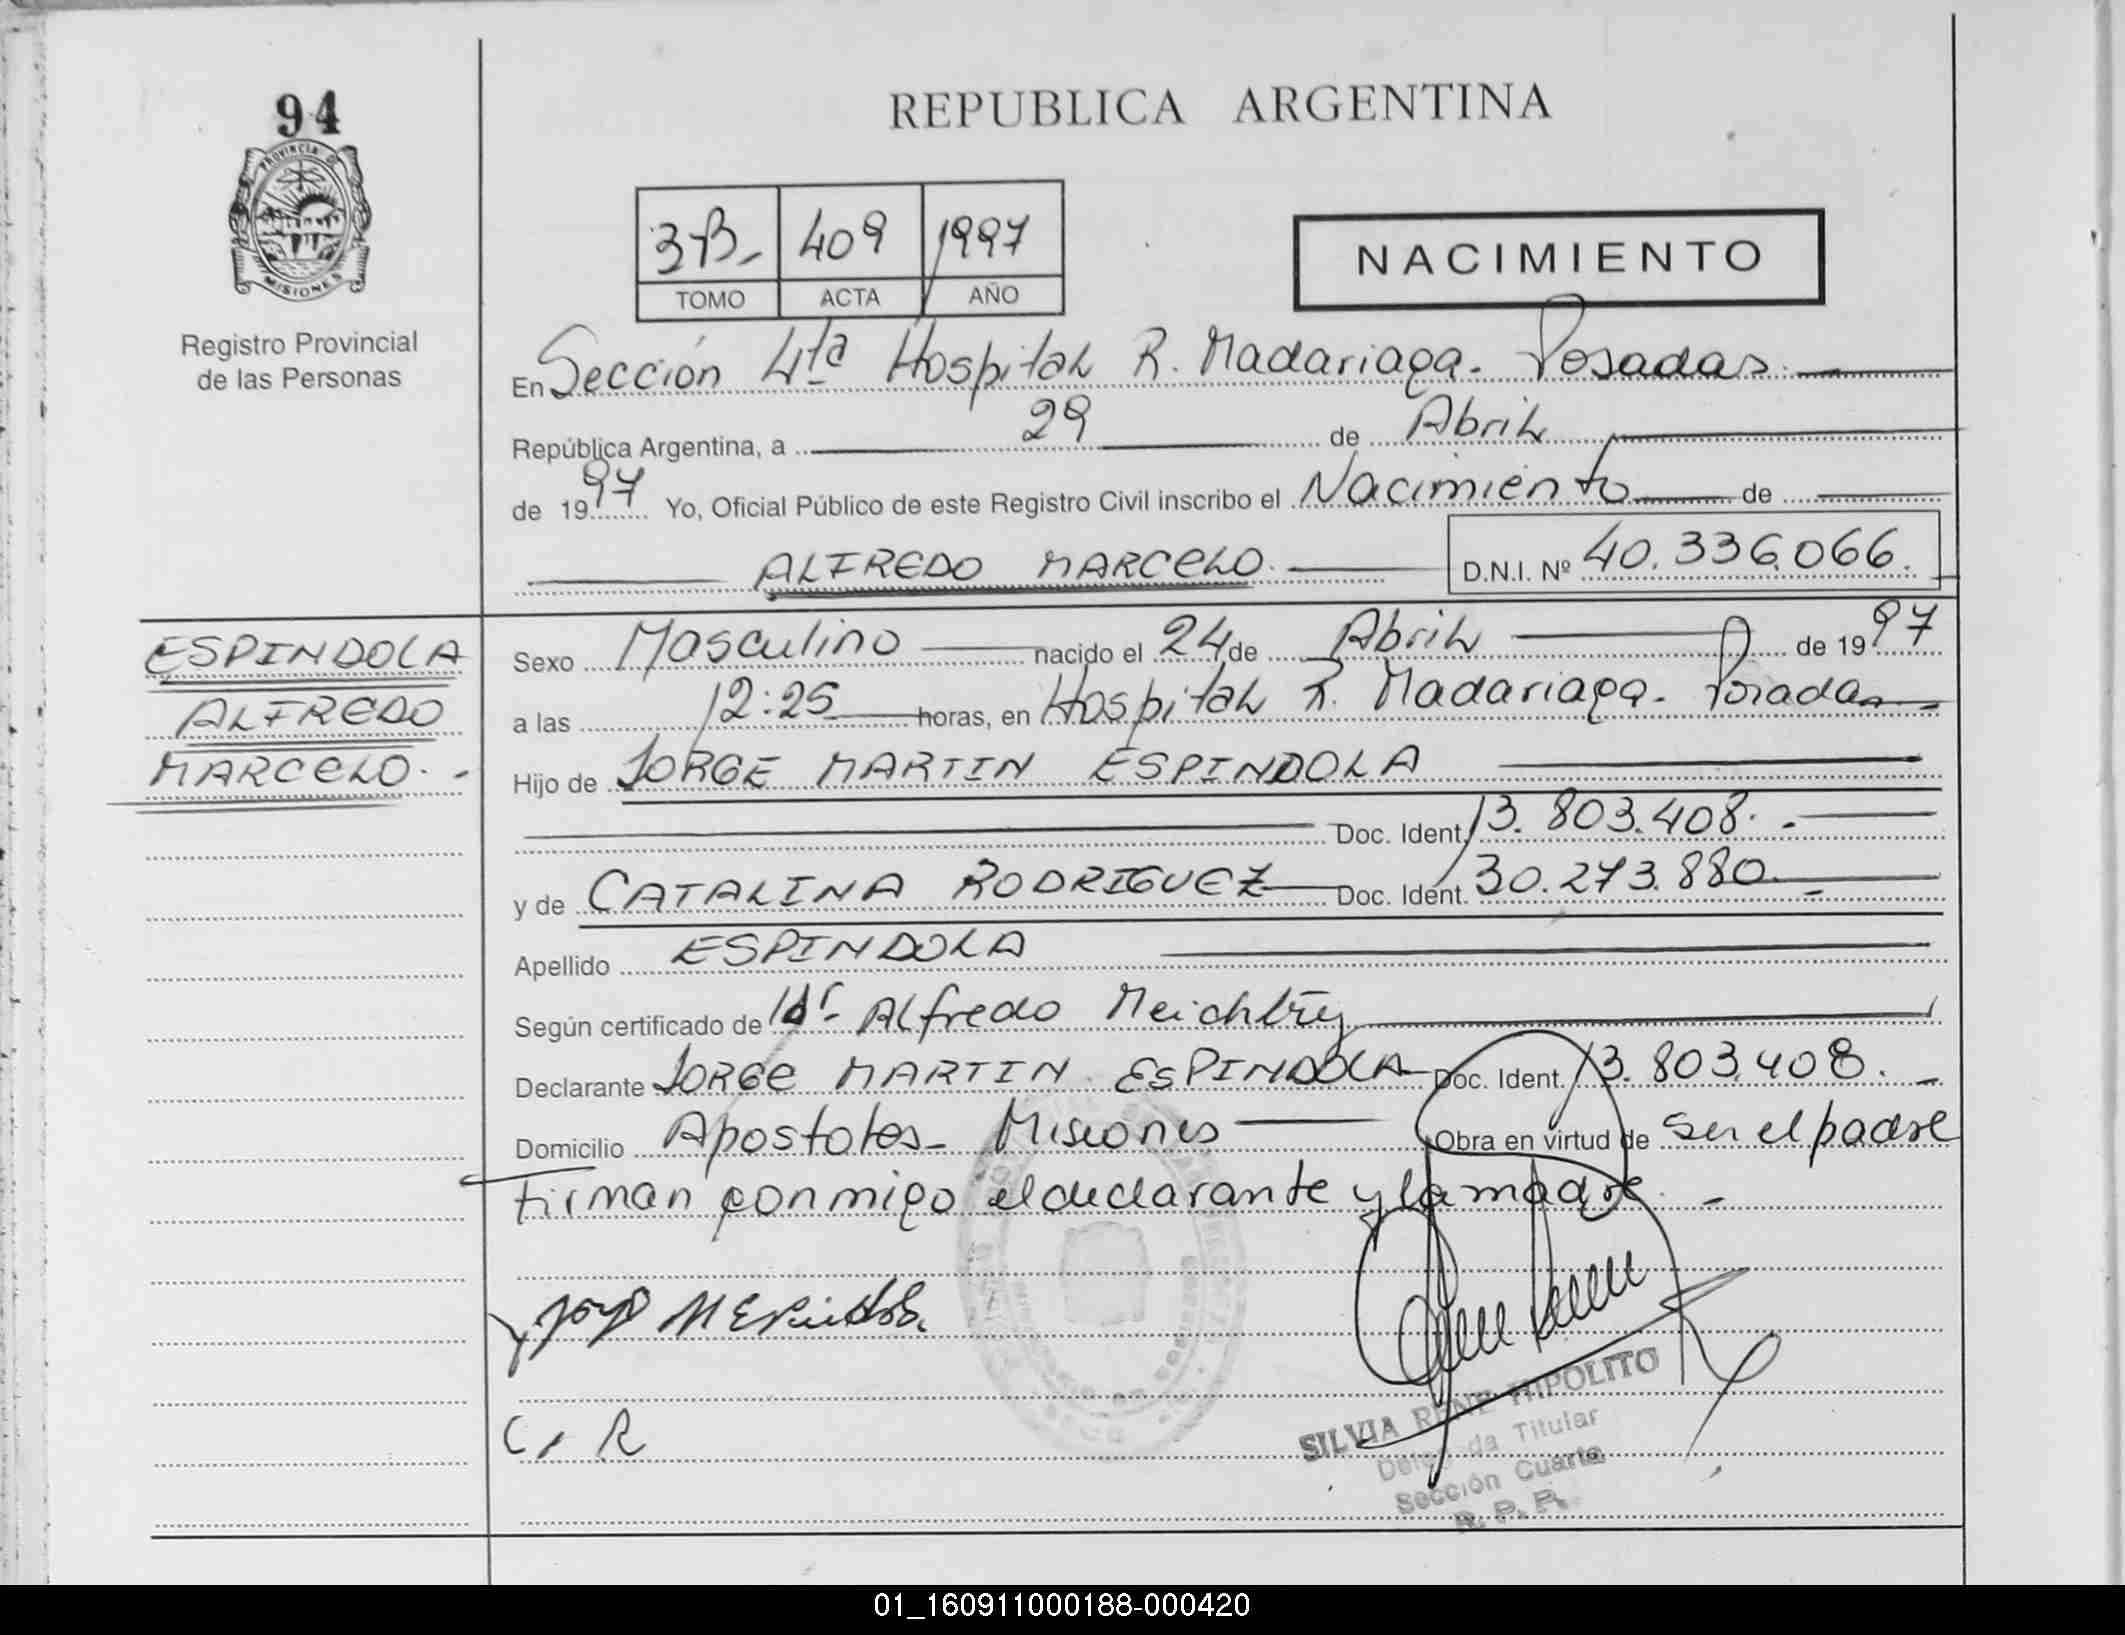 94
PROVINCIA DE
MISIONES
Registro Provincial
de las Personas
REPUBLICA ARGENTINA
3-B- 409 1997
TOMO ACTA AÑO
NACIMIENTO
En Sección 4ta Hospital R. Madariaga. Posadas
República Argentina, a 29 de Abril
de 1997 Yo, Oficial Público de este Registro Civil inscribo el Nacimiento de
ALFREDO MARCELO D.N.I. Nº 40.336.066.
ESPINDOLA
ALFREDO
MARCELO.-
Sexo Masculino nacido el 24 de Abril de 1997
a las 12:25 horas, en Hospital R. Madariaga. Posadas
Hijo de JORGE MARTIN ESPINDOLA
Doc. Ident. 13.803.408.-
y de CATALINA RODRIGUEZ Doc. Ident. 30.273.880.-
Apellido ESPINDOLA
Según certificado de Dr. Alfredo Meichtry
Declarante JORGE MARTIN ESPINDOLA Doc. Ident. 13.803.408.-
Domicilio Apostoles- Misiones Obra en virtud de ser el padre
firman conmigo el declarante y la madre.-
C. R
SILVIA RENE HIPOLITO
Delegada Titular
Sección Cuarta
R. P. P.
01_160911000188-000420